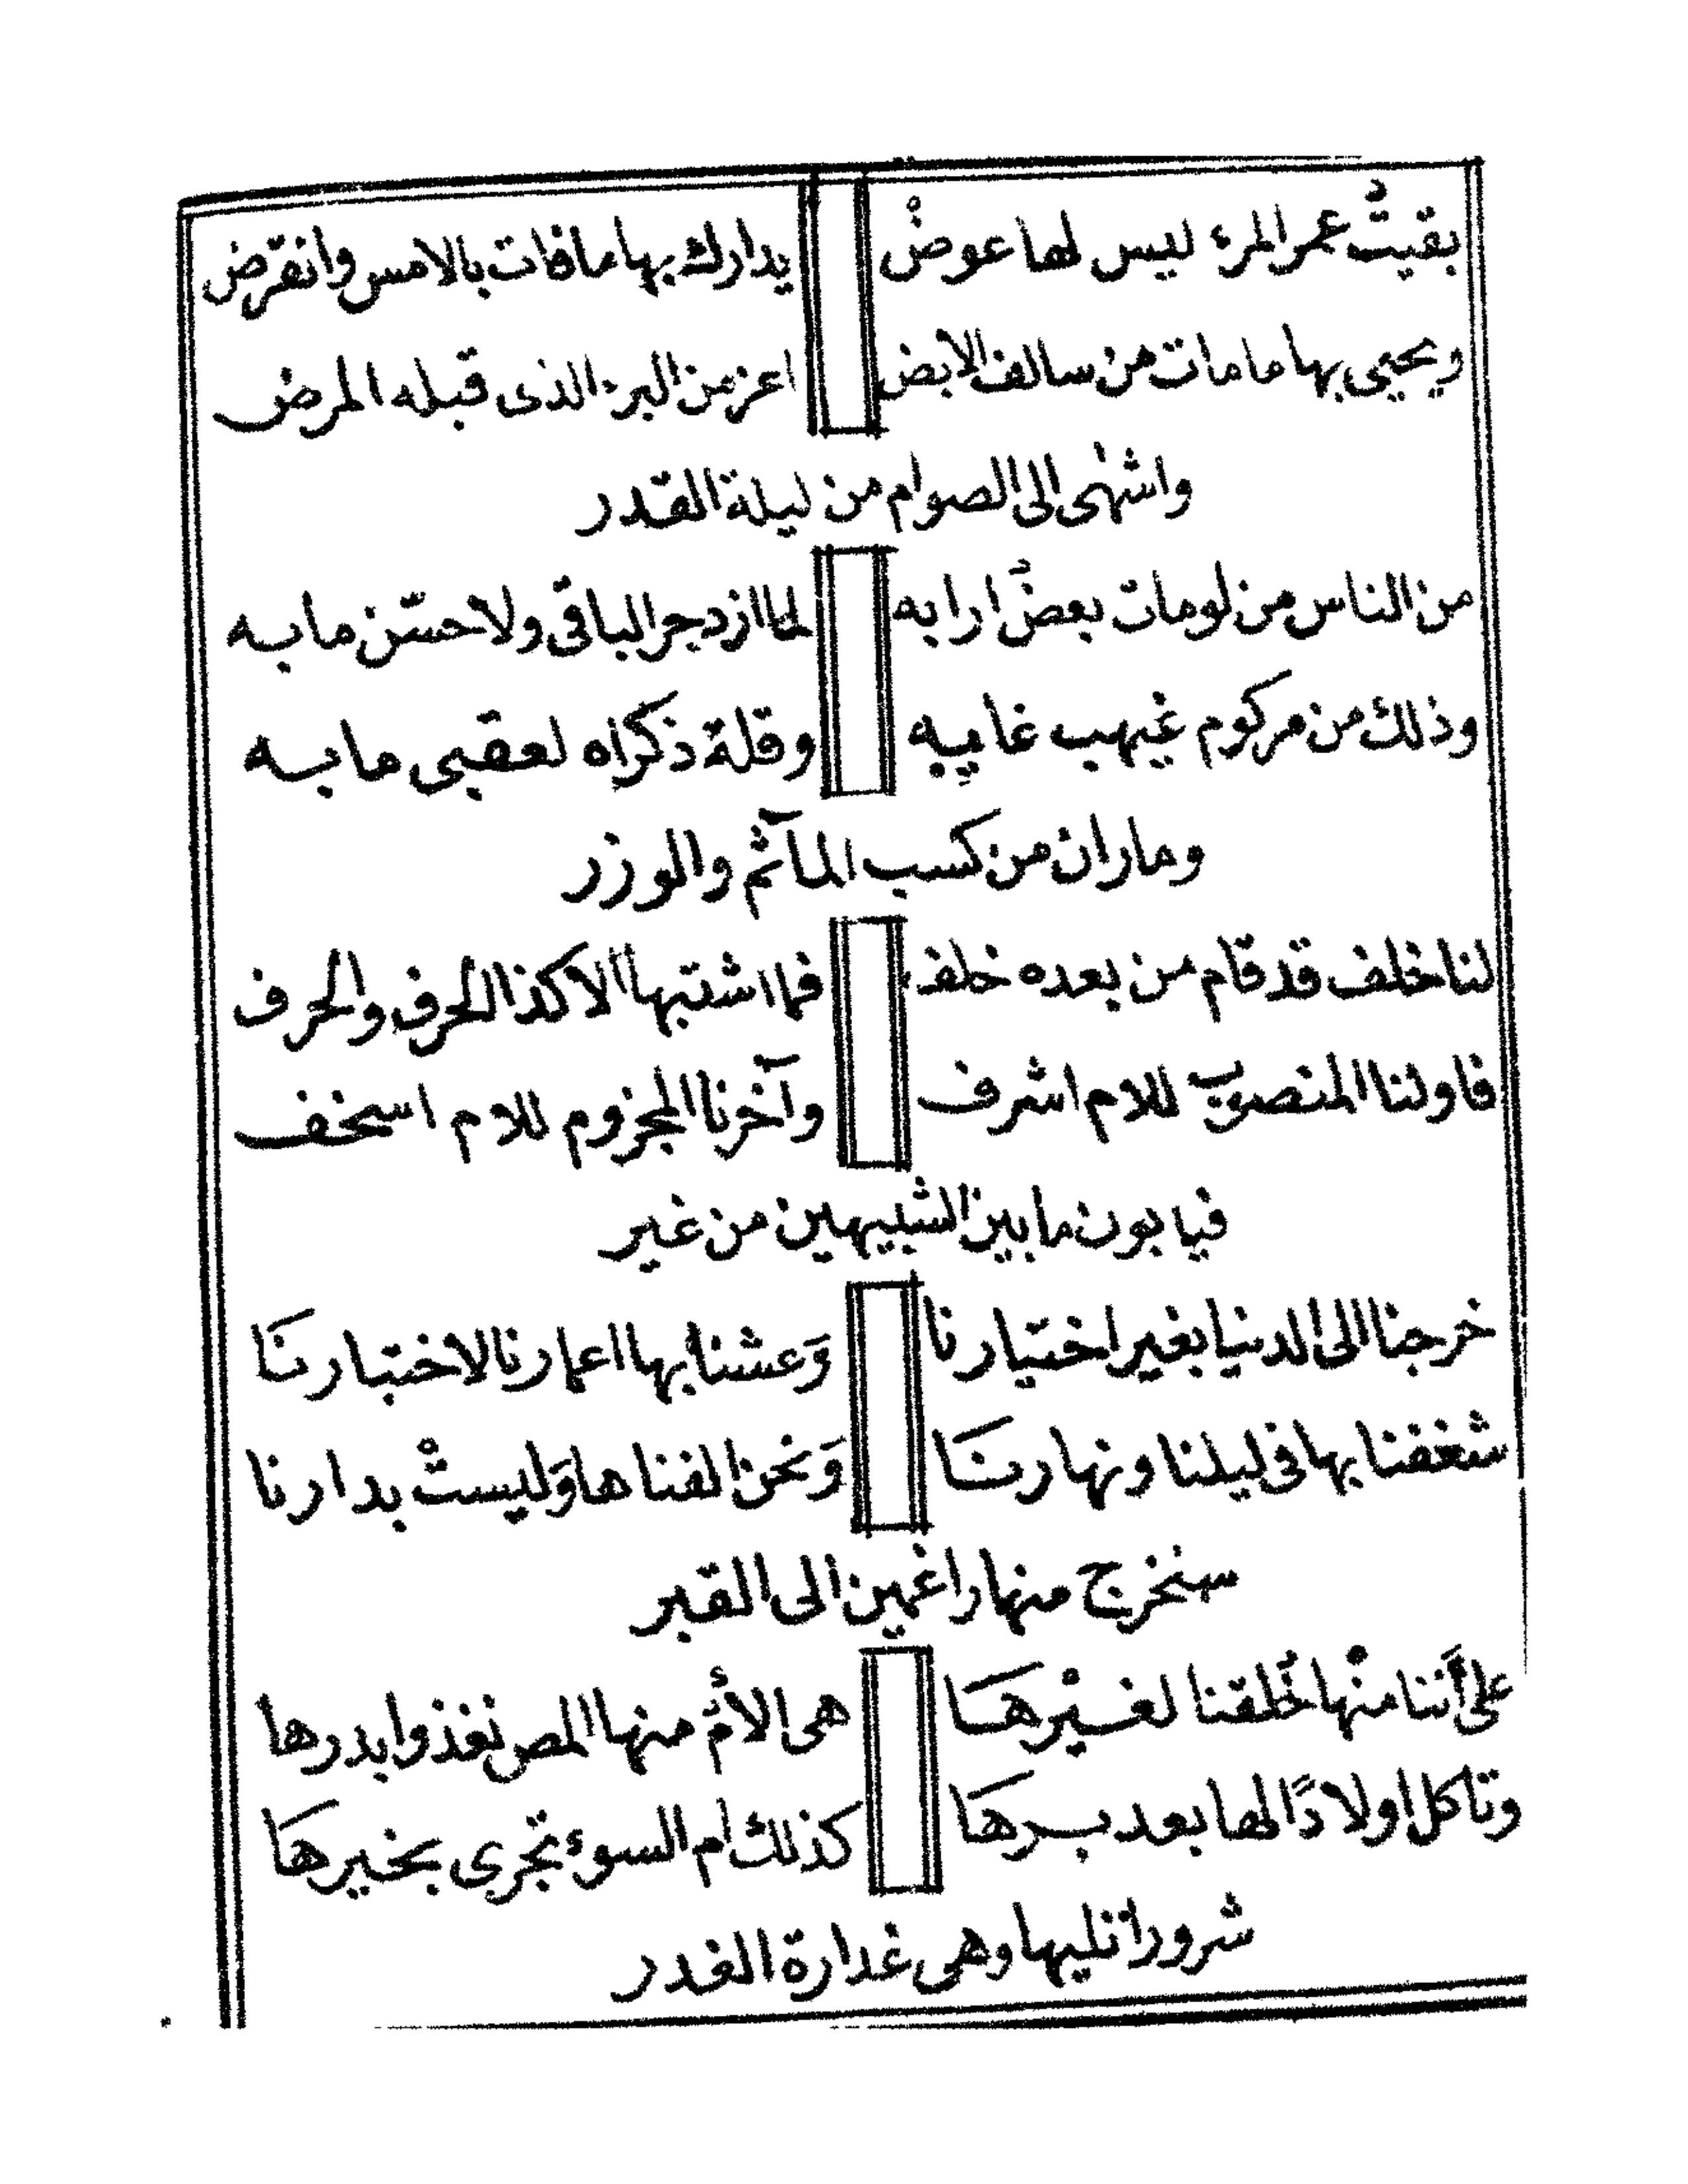 بقيتُ عمر المرء ليس لها عوضْ يدارك بها ما فات بالامس وانقرض
ويحيي بها ما مات من سالف الابض اعز من البرء الذى قبله المرض
واشهى الى الصوام من ليلة القدر
من الناس من لومات بعضُ ارابه لما ازدجر الباقى ولا حسّن ما به
وذلك من مركوم غيهب غابه وقلة ذكراه لعقبى مابه
وماران من كسب المآثم والوزر
لنا خلف قد قام من بعده خلف فما اشتبها الا كذا الحرف والحرف
فاولنا المنصوب للام اشرف وآخرنا المجزوم للام اسخف
فيا بون ما بين الشبيهين من غير
خرجنا الى الدنيا بغير اختيارنا وَعشنا بها اعمارنا لاختبارنَا
شغفنا بها فى ليلنا ونهارنَا وَنحن الفناها وَليستْ بدارنا
سنخرج منها راغمين الى القبر
على أَننا منْها خُلقنا لغيْرهَا هى الأمُّ منها المص نغذوا بدرها
وتاكل اولادًا لها بعد برهَا كذلك ام السوء تجرى بخيرهَا
شرورا تليها وهى غدارة الغدر